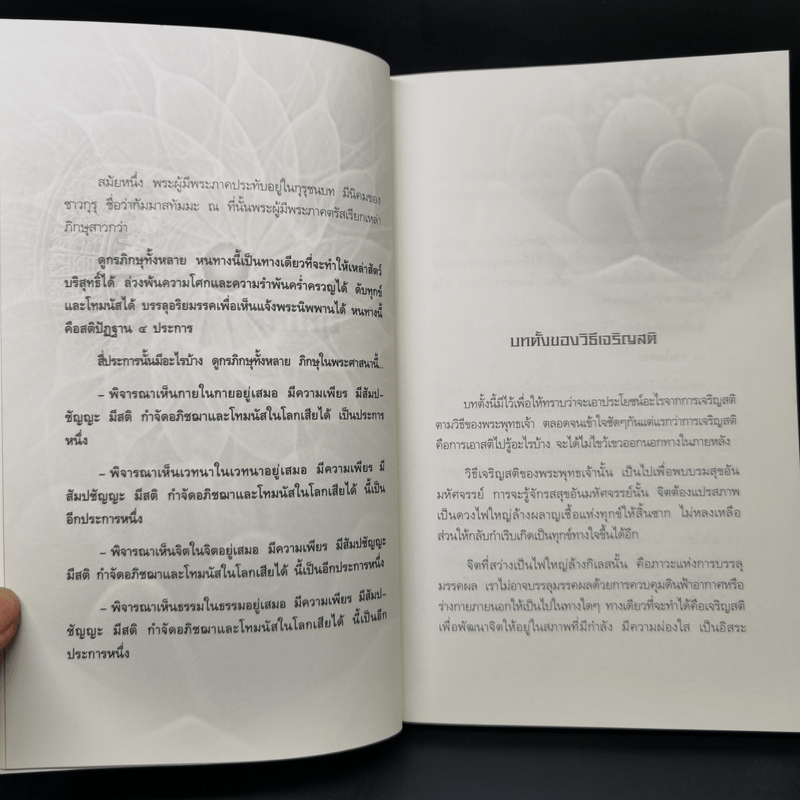 สมัยหนึ่ง พระผู้มีพระภาคประทับอยู่ในกุรุชนบท มีนิคมของ
ชาวกุรุ ชื่อว่ากัมมาสทัมมะ ณ ที่นั้นพระผู้มีพระภาคตรัสเรียกเหล่า
ภิกษุสาวกว่า
ดูกรภิกษุทั้งหลาย หนทางนี้เป็นทางเดียวที่จะทำให้เหล่าสัตว์
บริสุทธิ์ได้ ล่วงพ้นความโศกและความรำพันคร่ำครวญได้ ดับทุกข์
และโทมนัสได้ บรรลุอริยมรรคเพื่อเห็นแจ้งพระนิพพานได้ หนทางนี้
คือสติปัฏฐาน ๔ ประการ
สี่ประการนั้นมีอะไรบ้าง ดูกรภิกษุทั้งหลาย ภิกษุในพระศาสนานี้...
– พิจารณาเห็นกายในกายอยู่เสมอ มีความเพียร มีสัมป-
ชัญญะ มีสติ กำจัดอภิชฌาและโทมนัสในโลกเสียได้ เป็นประการ
หนึ่ง
– พิจารณาเห็นเวทนาในเวทนาอยู่เสมอ มีความเพียร มี
สัมปชัญญะ มีสติ กำจัดอภิชฌาและโทมนัสในโลกเสียได้ นี้เป็น
อีกประการหนึ่ง
– พิจารณาเห็นจิตในจิตอยู่เสมอ มีความเพียร มีสัมปชัญญะ
มีสติ กำจัดอภิชฌาและโทมนัสในโลกเสียได้ นี้เป็นอีกประการหนึ่ง
– พิจารณาเห็นธรรมในธรรมอยู่เสมอ มีความเพียร มีสัมป-
ชัญญะ มีสติ กำจัดอภิชฌาและโทมนัสในโลกเสียได้ นี้เป็นอีก
ประการหนึ่ง
บทตั้งของวิธีเจริญสติ
บทตั้งนี้มีไว้เพื่อให้ทราบว่าจะเอาประโยชน์อะไรจากการเจริญสติ
ตามวิธีของพระพุทธเจ้า ตลอดจนเข้าใจชัดๆกันแต่แรกว่าการเจริญสติ
คือการเอาสติไปรู้อะไรบ้าง จะได้ไม่ไขว้เขวออกนอกทางในภายหลัง
วิธีเจริญสติของพระพุทธเจ้านั้น เป็นไปเพื่อพบบรมสุขอัน
มหัศจรรย์ การจะรู้จักรสสุขอันมหัศจรรย์นั้น จิตต้องแปรสภาพ
เป็นดวงไฟใหญ่ล้างผลาญเชื้อแห่งทุกข์ให้สิ้นซาก ไม่หลงเหลือ
ส่วนให้กลับกำเริบเกิดเป็นทุกข์ทางใจขึ้นได้อีก
จิตที่สว่างเป็นไฟใหญ่ล้างกิเลสนั้น คือภาวะแห่งการบรรลุ
มรรคผล เราไม่อาจบรรลุมรรคผลด้วยการควบคุมดินฟ้าอากาศหรือ
ร่างกายภายนอกให้เป็นไปในทางใดๆ ทางเดียวที่จะทำได้คือเจริญสติ
เพื่อพัฒนาจิตให้อยู่ในสภาพที่มีกำลัง มีความผ่องใส เป็นอิสระ